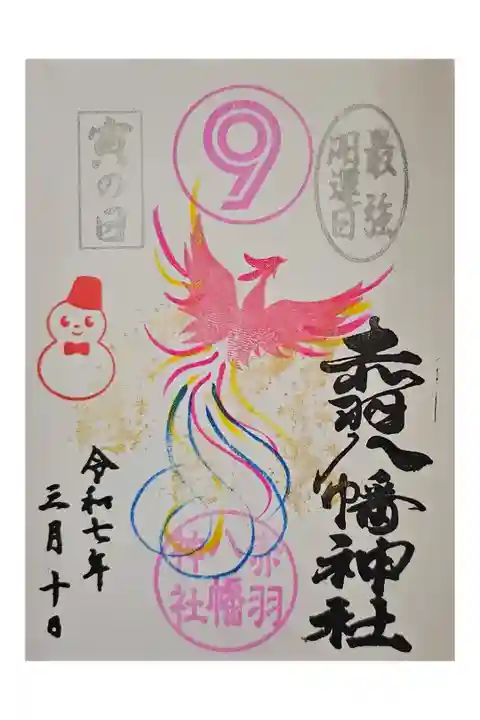 最強
開運日
⑨
寅の日
赤羽八幡神社
赤羽
八幡
神社
令和七年
三月十日